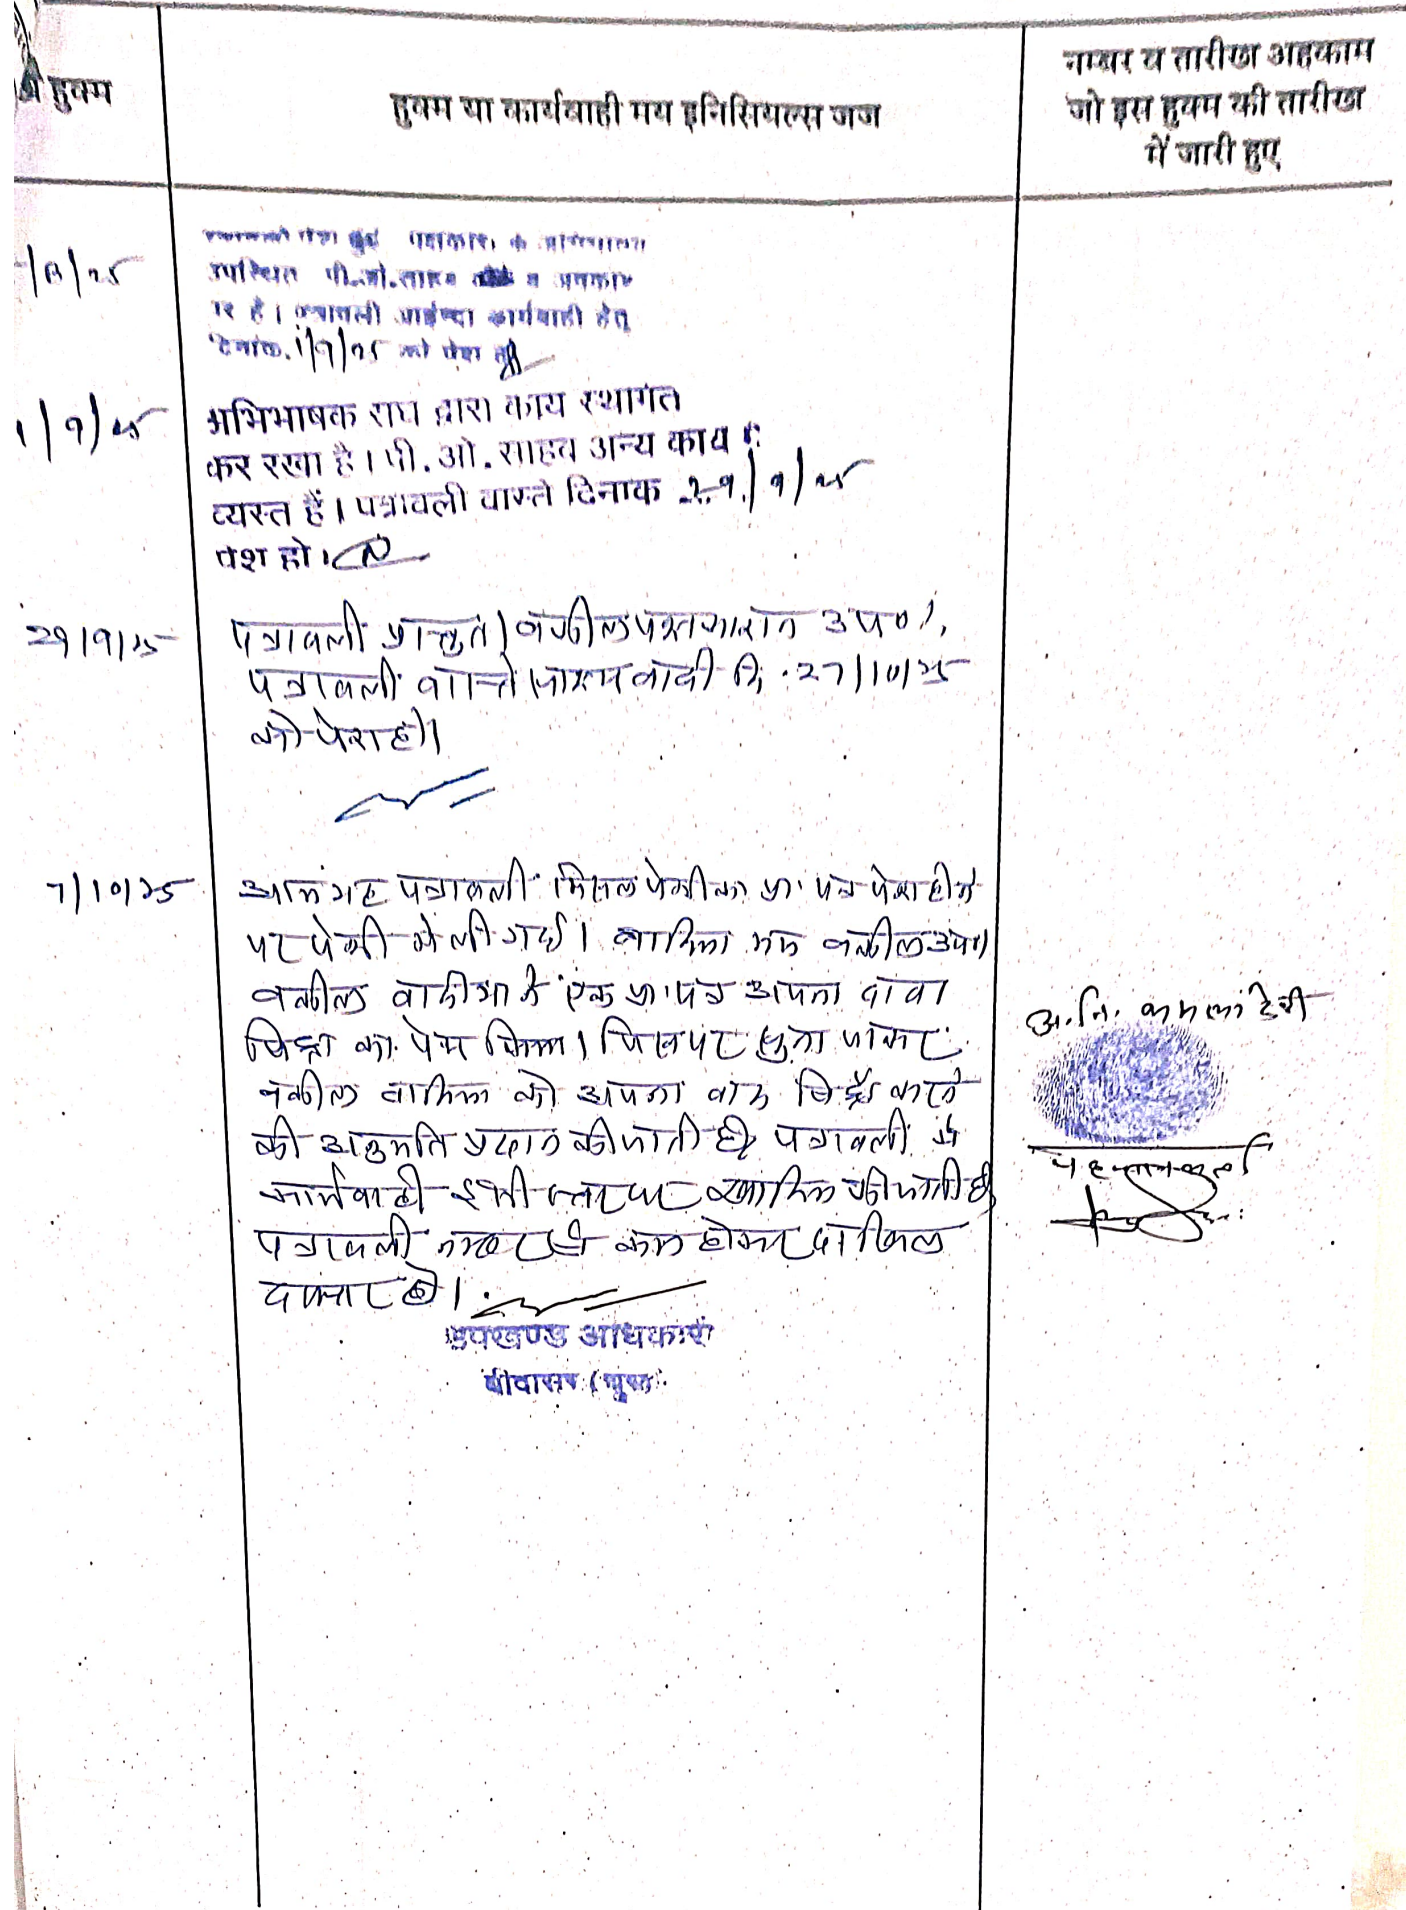 हुक्म
हुक्म या कार्यवाही मय इनिसियल्स जज
नम्बर व तारीख अहकाम
जो इस हुक्म की तारीख
में जारी हुए
/8/25
पेश हुई पक्षकारा के
उपस्थित पी.ओ.साहब व अवकाश
पर है। पत्रावली आईन्दा कार्यवाही हेतु
दिनांक 1/9/25 को पेश हो
1/9/25
अभिभाषक संघ द्वारा कार्य स्थगित
कर रखा है। पी.ओ. साहब अन्य कार्य में
व्यस्त हैं। पत्रावली वास्ते दिनांक 29/9/25
पेश हो।
29/9/25
पत्रावली प्रस्तुत। वकील पक्षकारान उप०।
पत्रावली वास्ते साक्ष्य वादी दि. 27/10/25
को पेश हो।
7/10/25
आज यह पत्रावली मिसल पेशी का प्रा. पत्र पेश होने
पर पेशी में ली गई। वादिया मय वकील उप०।
वकील वादीया ने एक प्रा. पत्र अपना दावा
विड्रा का पेश किया। जिस पर सुना जाकर
वकील वादिया को अपना वाद विड्रॉ करने
की अनुमति प्रदान की जाती है। पत्रावली में
कार्यवाही इसी स्तर पर खारिज की जाती है।
पत्रावली नम्बर से कम होकर दाखिल
दफ्तर हो।
उपखण्ड अधिकारी
बीदासर (चूरू)
अ.नि. कमला देवी
पहचानकर्ता